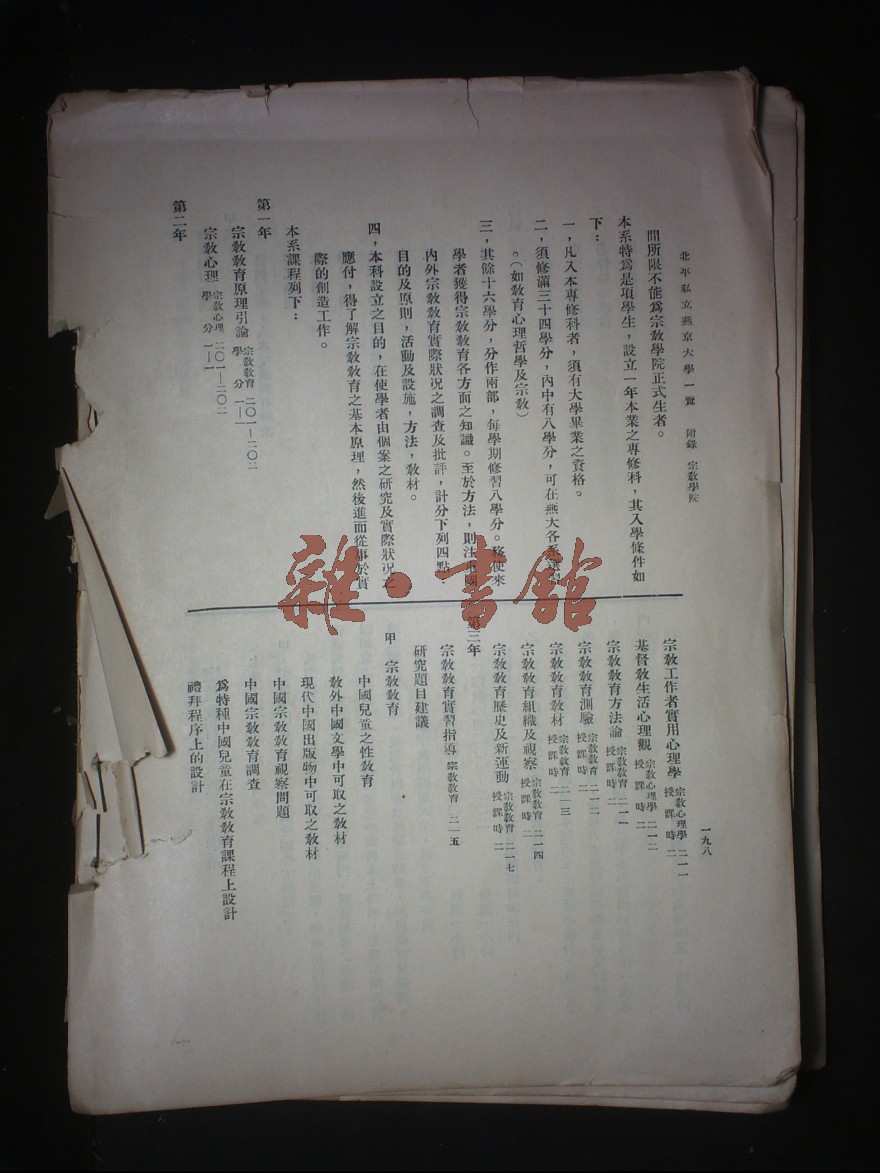 北平私立燕京大學一覽 附錄 宗教學院
一九八
間所限不能爲宗教學院正式生者。
本系特爲是項學生，設立一年本業之專修科，其入學條件如
下：
一，凡入本專修科者，須有大學畢業之資格。
二，須修滿三十四學分，內中有八學分，可在燕大各系選
。（如教育心理哲學及宗教）
三，其餘十六學分，分作兩部，每學期修習八學分。務使來
學者獲得宗教教育各方面之知識。至於方法，則注重國
內外宗教教育實際狀況之調查及批評，計分下列四點，
目的及原則，活動及設施，方法，教材。
四，本科設立之目的，在使學者由個案之研究及實際狀況之
應付，得了解宗教教育之基本原理，然後進而從事於實
際的創造工作。
本系課程列下：
第一年
宗教教育原理引論 宗教教育 二〇一—二〇二 學分 一—一
宗教心理 宗教心理 二〇一—二〇二 學分 一—一
第二年
宗教工作者實用心理學 宗教心理學 二一一 授課時 二
基督教生活心理觀 宗教心理學 二一二 授課時 二
宗教教育方法論 宗教教育 二一一 授課時 二
宗教教育測驗 宗教教育 二一二 授課時 二
宗教教育教材 宗教教育 二一三 授課時 二
宗教教育組織及視察 宗教教育 二一四 授課時 二
宗教教育歷史及新運動 宗教教育 二一七 授課時 二
第三年
宗教教育實習指導 宗教教育 二一五
研究題目建議
甲 宗教教育
中國兒童之性教育
教外中國文學中可取之教材
現代中國出版物中可取之教材
中國宗教教育視察問題
中國宗教教育調查
爲特種中國兒童在宗教教育課程上設計
禮拜程序上的設計
雜·書館